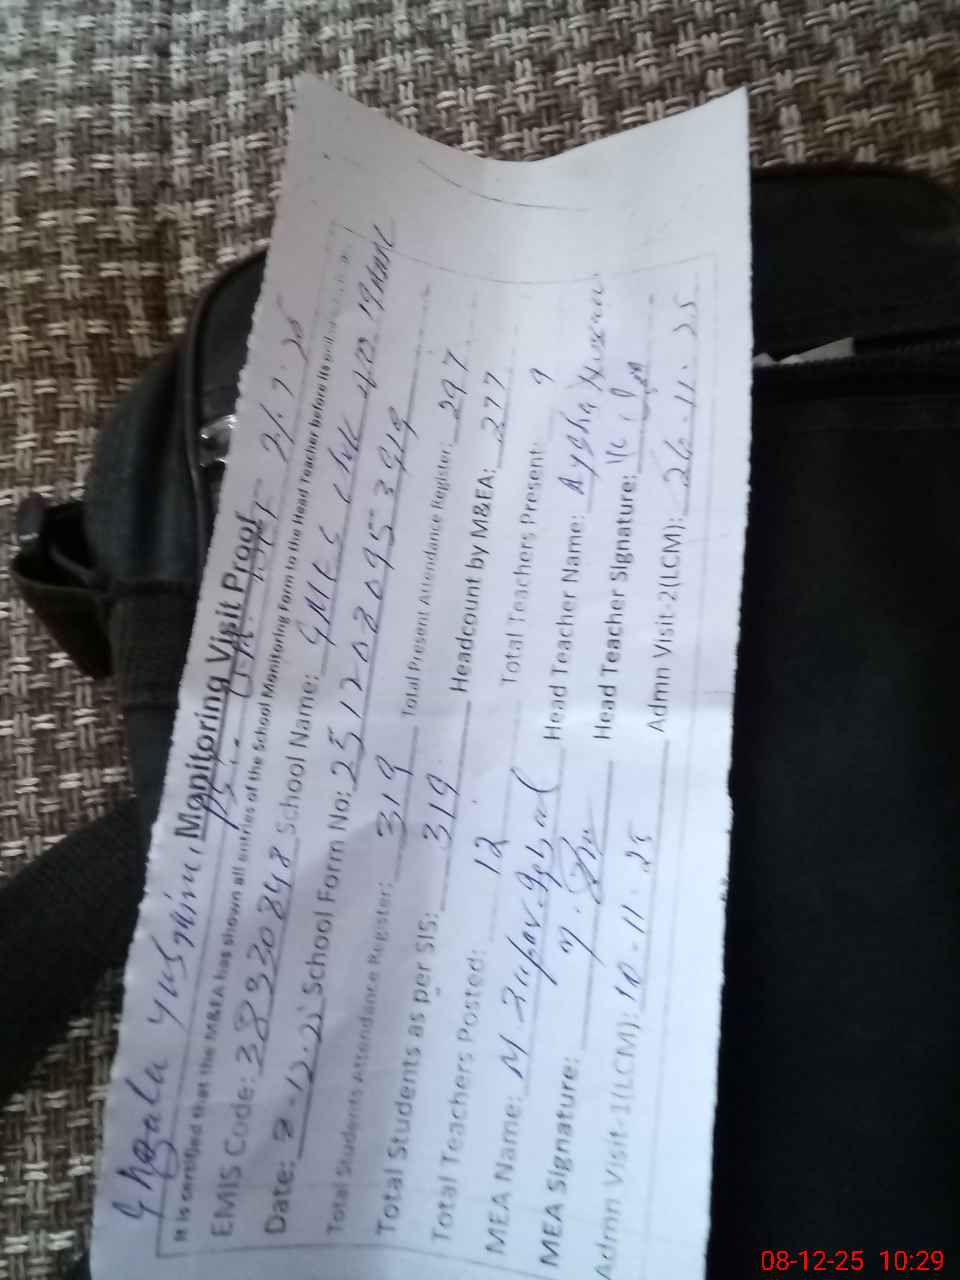 Ghazala Yusmine,
Monitoring Visit Proof
It is certified that the M&EA has shown all entries of the School Monitoring Form to the Head Teacher before its
EMIS Code: 38930848 School Name: GMES
Date: 8-12-25 School Form No: 2512080953919
Total Students Attendance Register: 319 Total Present Attendance Register: 297
Total Students as per SIS: 319 Headcount by M&EA: 277
Total Teachers Posted: 12 Total Teachers Present: 9
MEA Name: M. Zafar Iqbal Head Teacher Name: Aysha Hussain
MEA Signature: Head Teacher Signature:
Admn Visit-1(LCM): 10-11-25 Admn Visit-2(LCM): 26.11.25
08-12-25 10:29